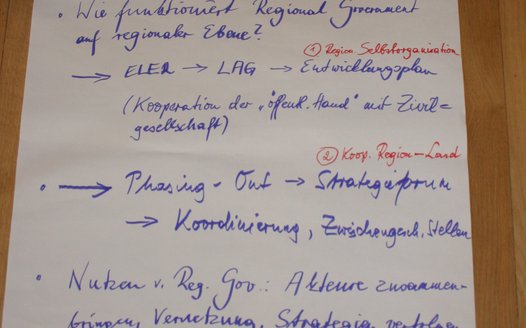 • Wie funktioniert Regional Government
auf regionaler Ebene?
① Region. Selbstorganisation
→ ELER → LAG → Entwicklungsplan
(Kooperation der „öffentl. Hand" mit Zivil=
gesellschaft)
② Koop. Region - Land
• → Phasing - Out → Strategieforum
→ Koordinierung, Zwischengesch. Stellen
• Nutzen v. Reg. Gov.: Akteure zusammen-
bringen, Vernetzung, Strategie verfolgen